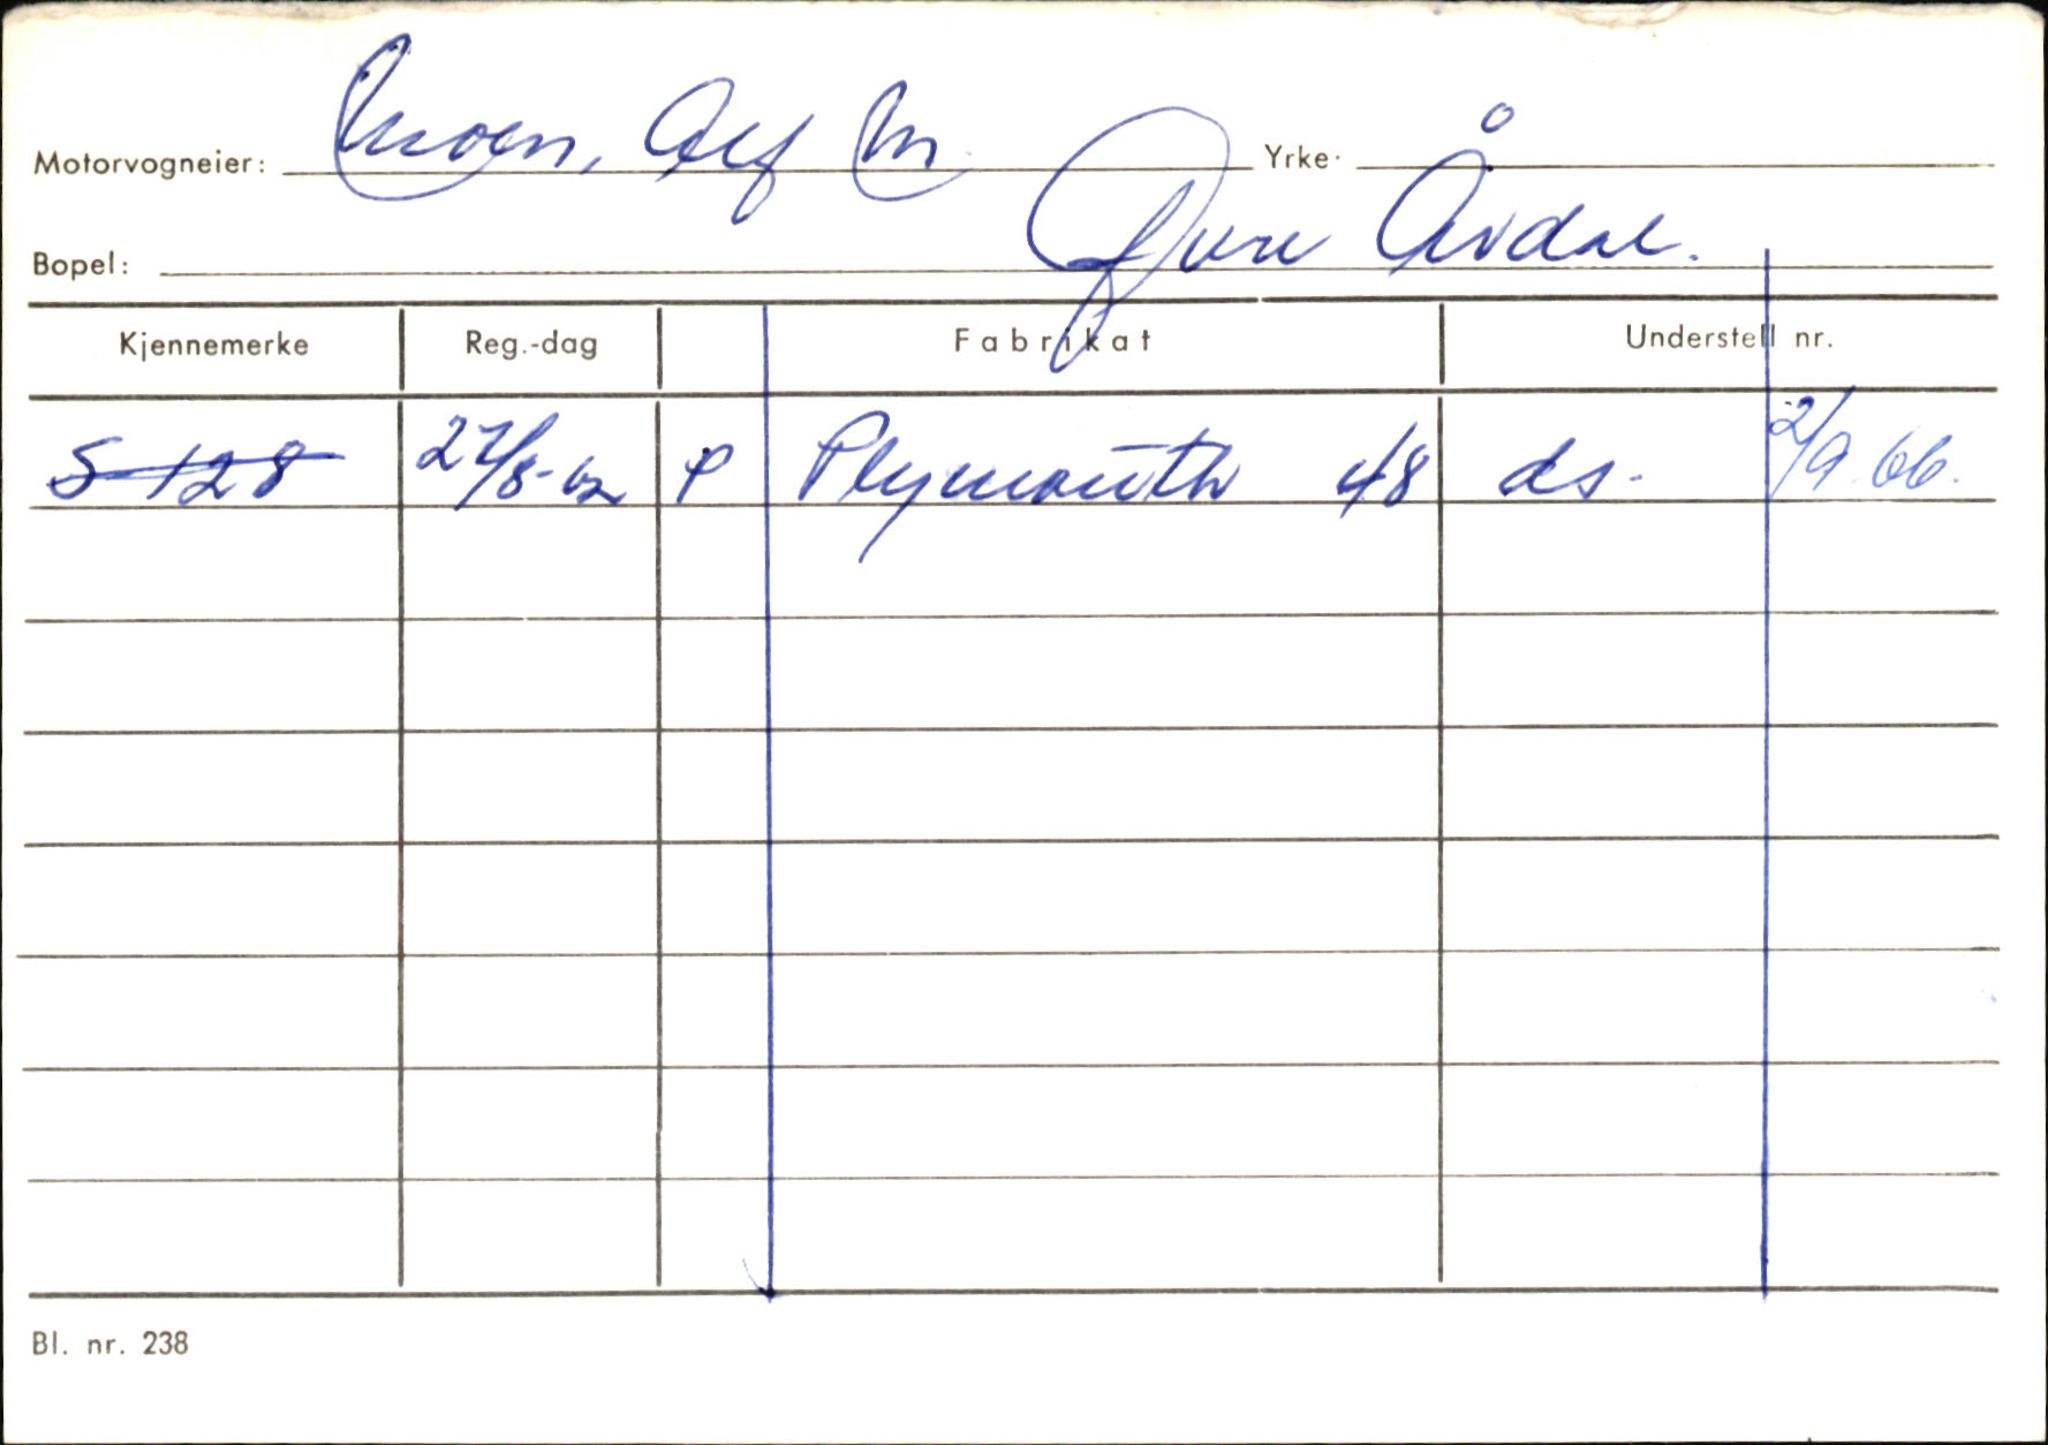 Motorvogneier: Moen, Alf M. Yrke:
Bopel: Øvre Årdal.
Kjennemerke Reg.-dag Fabrikat Understell nr.
S-128 27/8-62 P Plymouth 48 ds. 2/9.66.
Bl. nr. 238